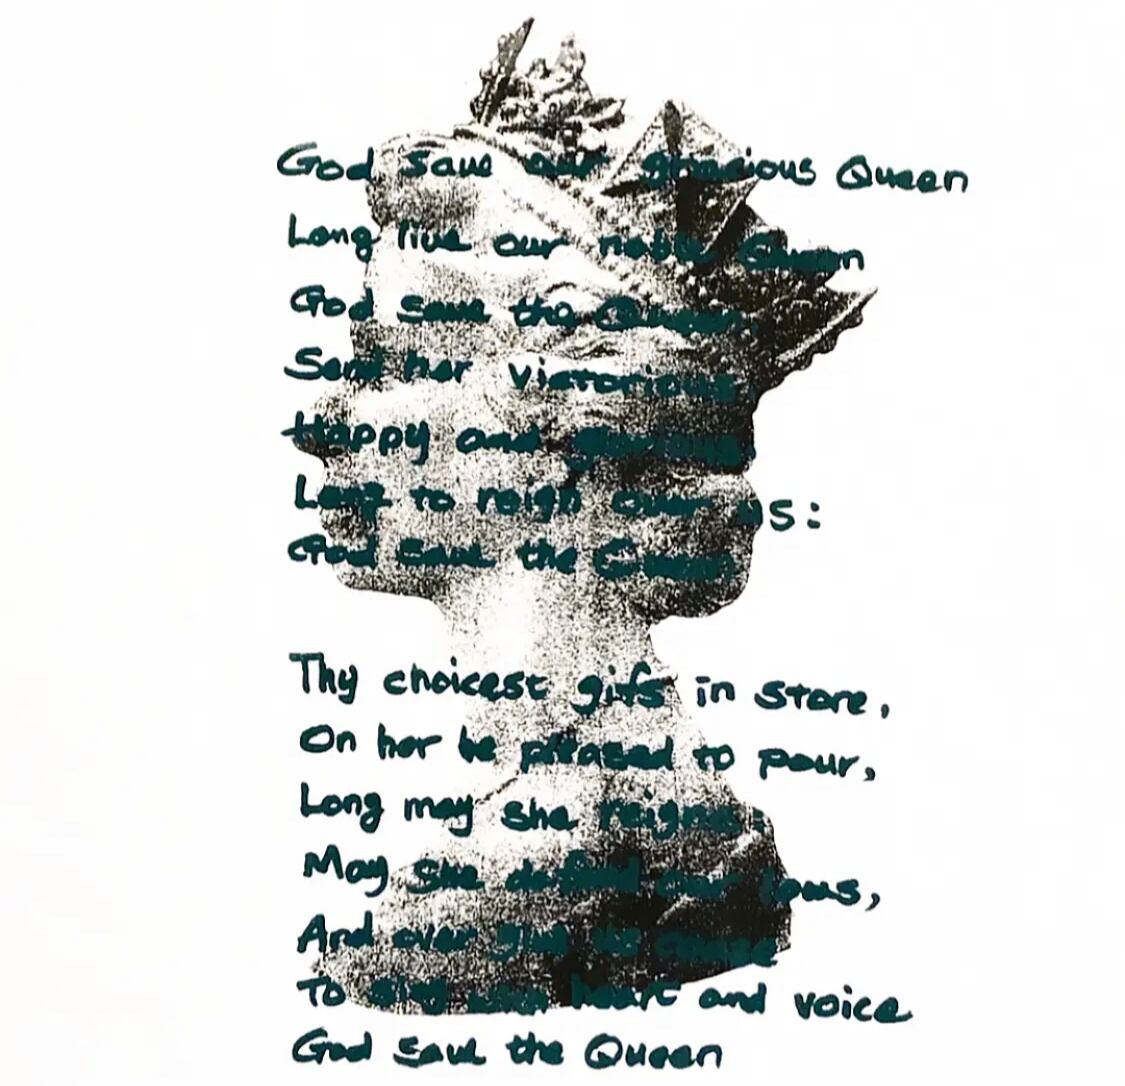 God save our gracious Queen
Long live our noble Queen
God save the Queen
Send her victorious,
Happy and glorious
Long to reign over us:
God save the Queen
Thy choicest gifs in store,
On her be pleased to pour,
Long may she reign:
May she defend our laws,
And ever give us cause
To sing with heart and voice
God save the Queen